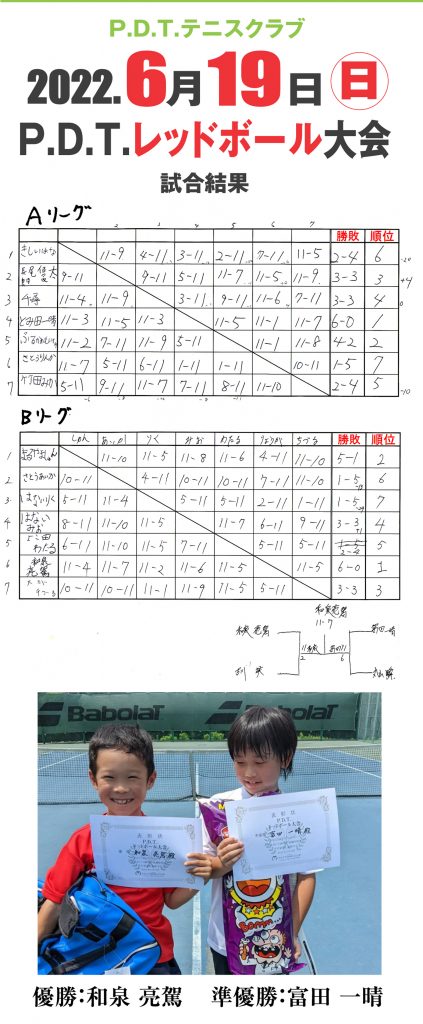 P.D.T.テニスクラブ
2022.6月19日(日)
P.D.T.レッドボール大会
試合結果
Aリーグ
2 3 4 5 6 7 勝敗 順位
1 11-9 4-11 3-11 2-11 7-11 11-5 2-4 6
2 9-11 9-11 5-11 11-7 11-5 11-9 3-3 3 +4
3 11-4 11-9 3-11 9-11 11-6 7-11 3-3 4 0
4 とみ田一晴 11-3 11-5 11-3 11-5 11-1 11-7 6-0 1
5 11-2 7-11 11-9 5-11 11-1 11-8 4-2 2
6 さとうりんか 11-7 5-11 6-11 1-11 1-11 10-11 1-5 7
7 竹田みか 5-11 9-11 11-7 7-11 8-11 11-10 2-4 5 -10
Bリーグ
しゅん あいか りく みお わたる りょうが ちづる 勝敗 順位
1 11-10 11-5 11-8 11-6 4-11 11-10 5-1 2
2 さとうあいか 10-11 4-11 10-11 10-11 7-11 11-10 1-5 6
3 はないりく 5-11 11-4 5-11 5-11 2-11 1-11 1-5 7
4 はない みお 8-11 11-10 11-5 11-7 6-11 9-11 3-3 4
5 わたる 6-11 11-10 11-5 7-11 5-11 5-11 2-4 5
6 和泉 亮駕 11-4 11-7 11-2 11-6 11-5 11-5 6-0 1
7 10-11 10-11 11-1 11-9 11-5 5-11 3-3 3
和泉亮駕
11-7
和泉亮駕
富田一晴
11
2
11
6
BaboLaT
BaboLaT
表彰状
P.D.T.
レッドボール大会
和泉 亮駕殿
表彰状
P.D.T.
レッドボール大会
富田 一晴殿
優勝:和泉 亮駕 準優勝:富田 一晴